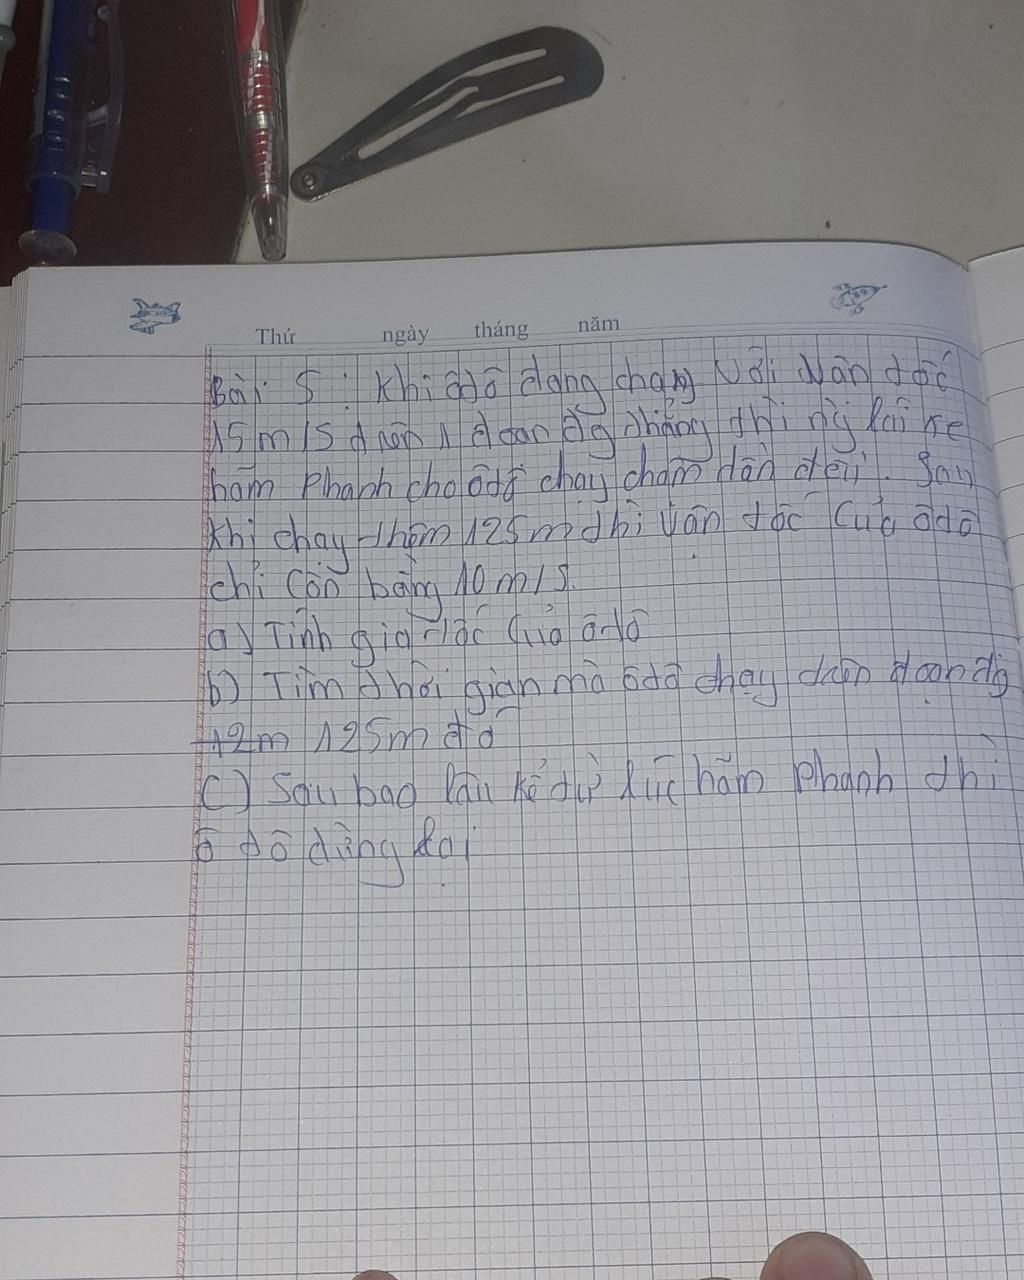 Thứ ngày tháng năm
Bài 5: Khi ôtô đang chạy với vận tốc
15m/s trên 1 đoạn đg thẳng thì ng lái xe
hãm phanh cho ôtô chạy chậm dần đều. Sau
khi chạy thêm 125m thì vận tốc của ôtô
chỉ còn bằng 10m/s.
a) Tính gia tốc của ôtô
b) Tìm thời gian mà ôtô chạy trên đoạn đg
12m 125m đó
c) Sau bao lâu kể từ lúc hãm phanh thì
ô tô dừng lại